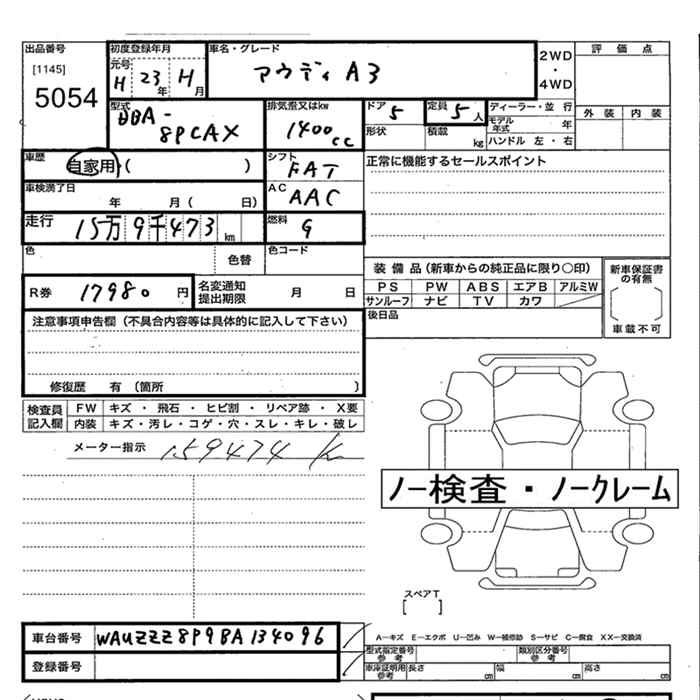 出品番号
[1145]
5054
初度登録年月
元号
H 23年 H月
車名・グレード
アウディ A3
2WD
・
4WD
評価点
外装 内装
型式
DBA-
8PCAX
排気量又はkw
1400cc
ドア
5
定員
5人
形状
積載
kg
ディーラー・並行
モデル年式 年
ハンドル 左・右
車歴
自家用・( )
シフト
FAT
正常に機能するセールスポイント
車検満了日
年 月( 日)
AC
AAC
走行
15万9千473km
燃料
G
色
色替
色コード
装備品(新車からの純正品に限り○印)
PS PW ABS エアB アルミW
サンルーフ ナビ TV カワ
新車保証書
の有無
[ ]
車載不可
R券
17980円
名変通知
提出期限
月 日
後日品
注意事項申告欄(不具合内容等は具体的に記入して下さい)
修復歴 有 〔箇所 〕
検査員
記入欄
FW キズ・飛石・ヒビ割・リペア跡・X要
内装 キズ・汚レ・コゲ・穴・スレ・キレ・破レ
メーター指示 159474 K
ノー検査・ノークレーム
スペアT
[ ]
車台番号
WAUZZZ8P9BA134096
登録番号
A-キズ E-エクボ U-凹み W-補修跡 S-サビ C-腐食 XX-交換済
型式指定番号
参考
類別区分番号
参考
車庫証明用
参考
長さ cm
幅 cm
高さ cm